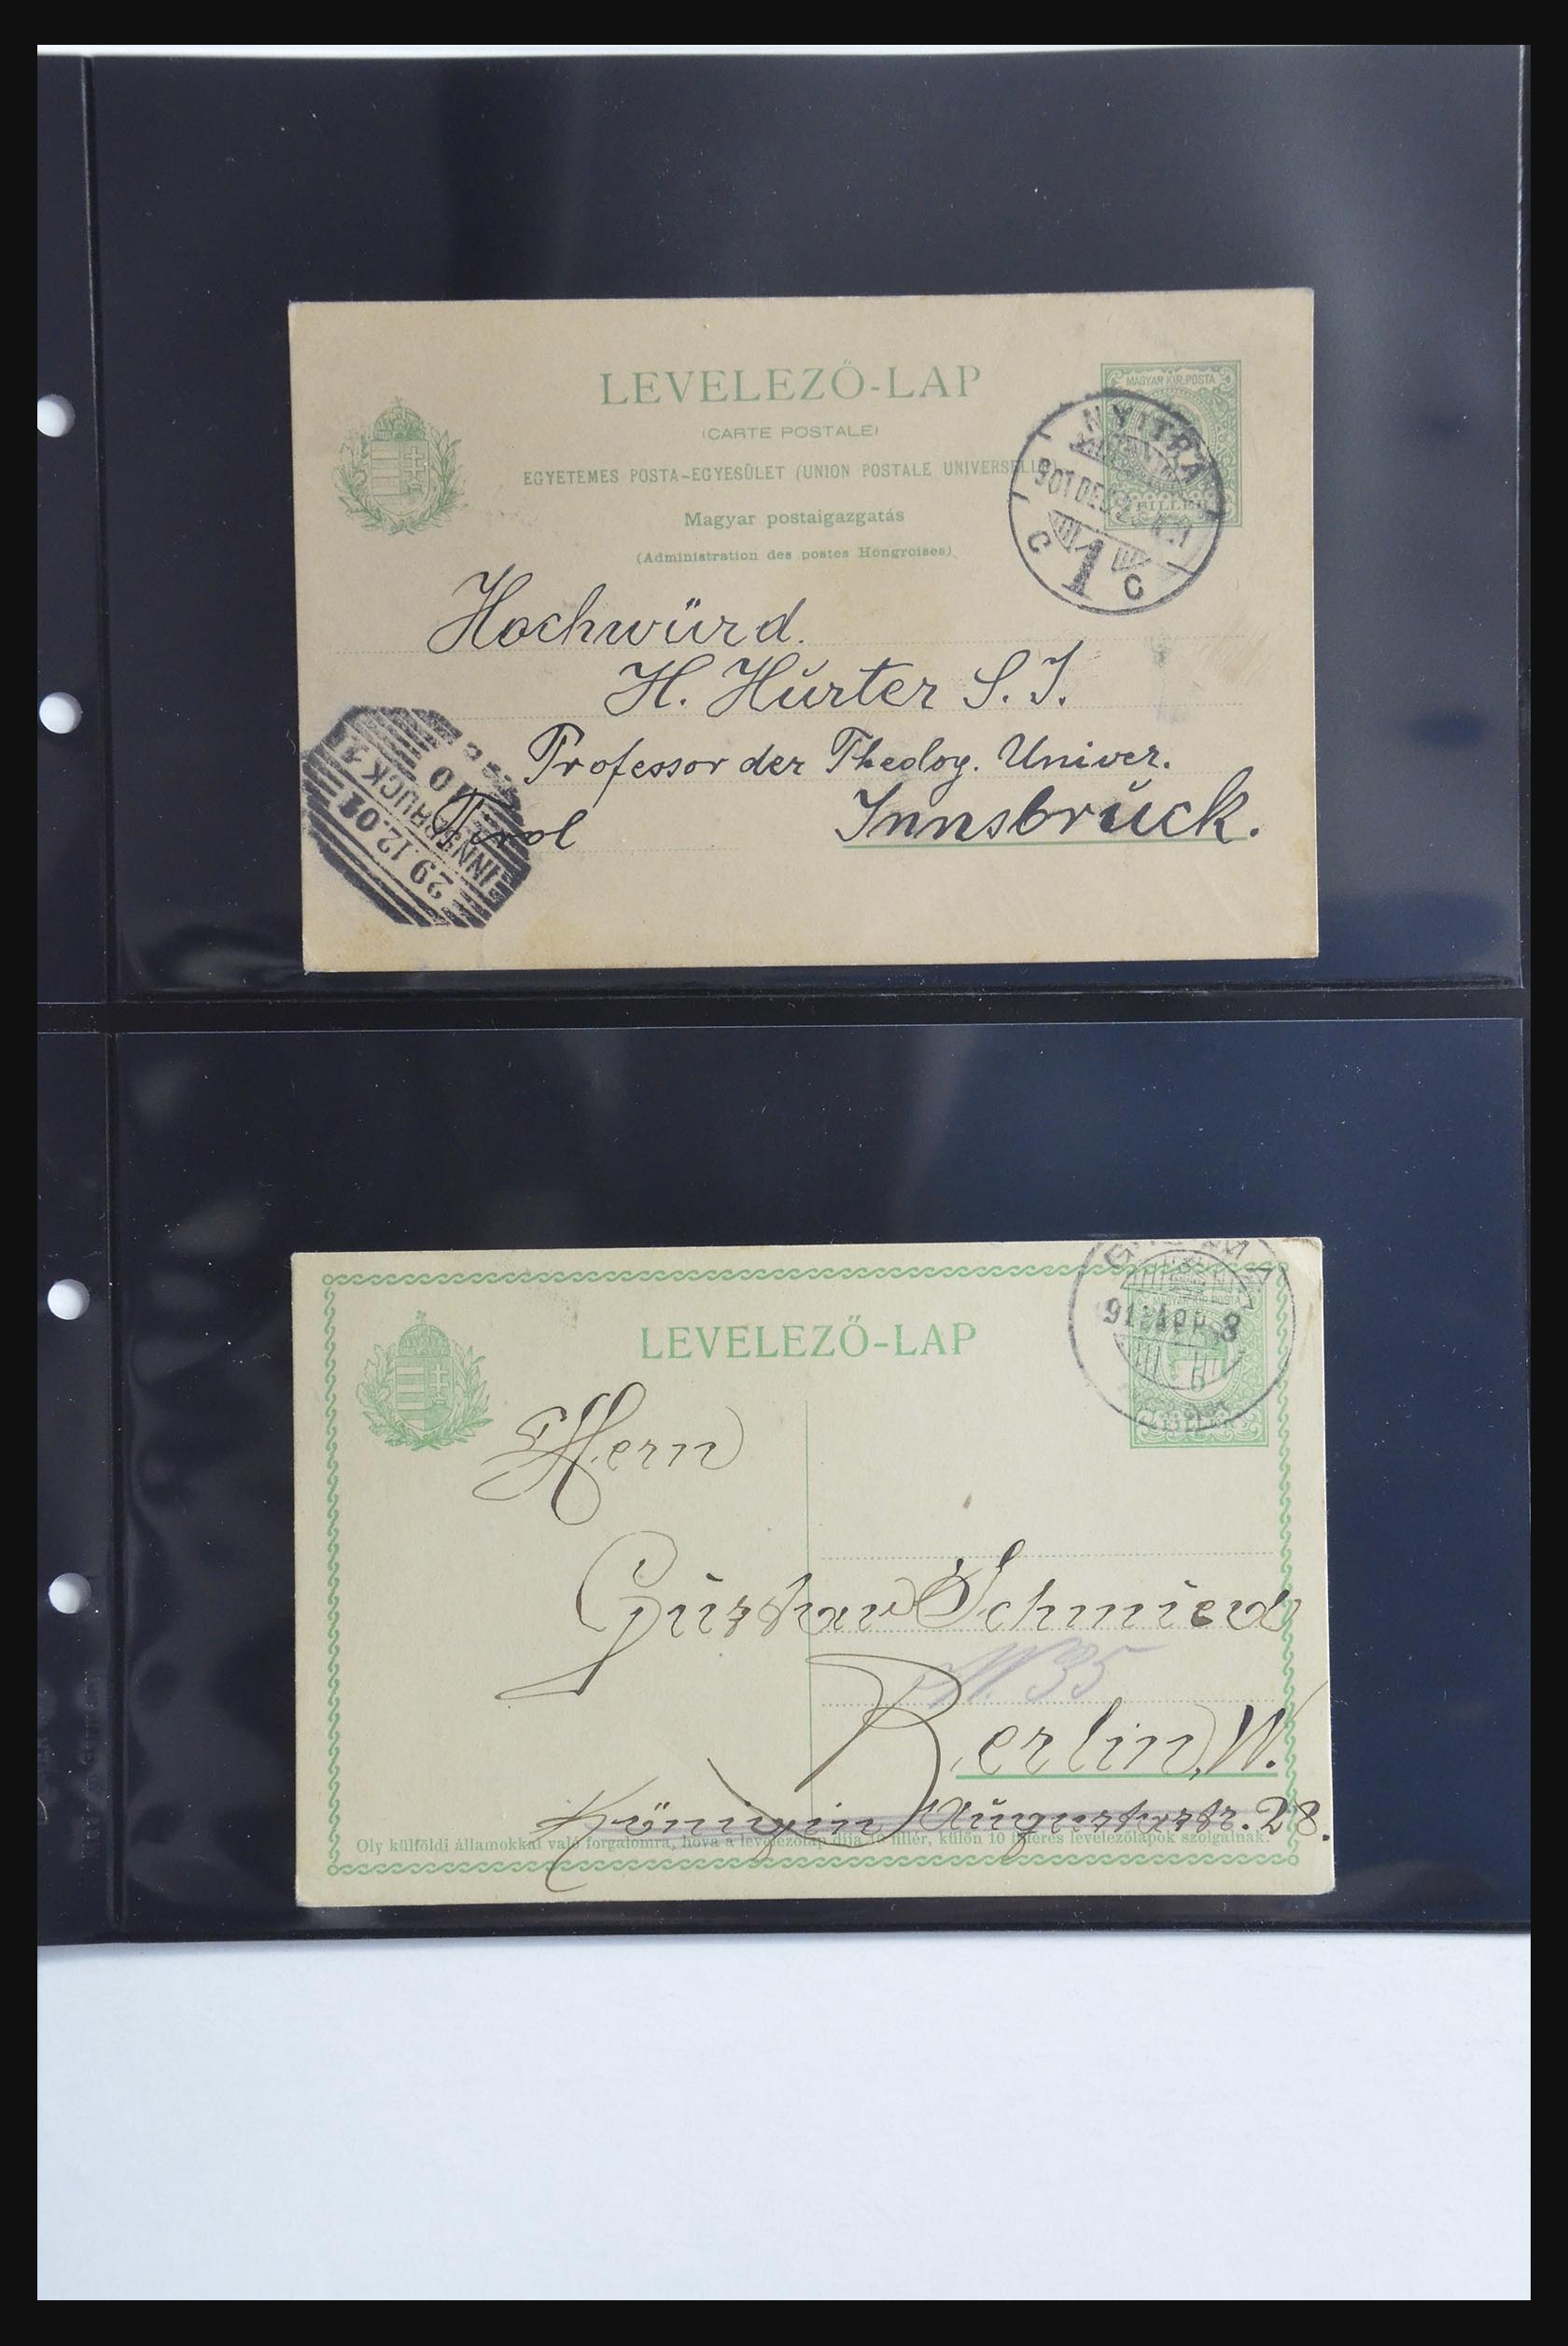 LEVELEZŐ-LAP
(CARTE POSTALE)
EGYETEMES POSTA-EGYESÜLET (UNION POSTALE UNIVERSELLE)
Magyar postaigazgatás
(Administration des postes Hongroises)
MAGYAR KIR. POSTA
FILLÉR
NYITRA
901 DEC
C 1 C
Hochwürd.
H. Hurter S. J.
Professor der Theolog. Univer.
Tirol Innsbruck.
INNSBRUCK 1
29.12.01
10
LEVELEZŐ-LAP
POSTA
APR 8
Hern
Gustav Schmied
W. 35
Berlin, W.
Königin Augustastr. 28.
Oly külföldi államokkal való forgalomra, hova a levelezőlap díja 10 fillér, külön 10 filléres levelezőlapok szolgálnak.